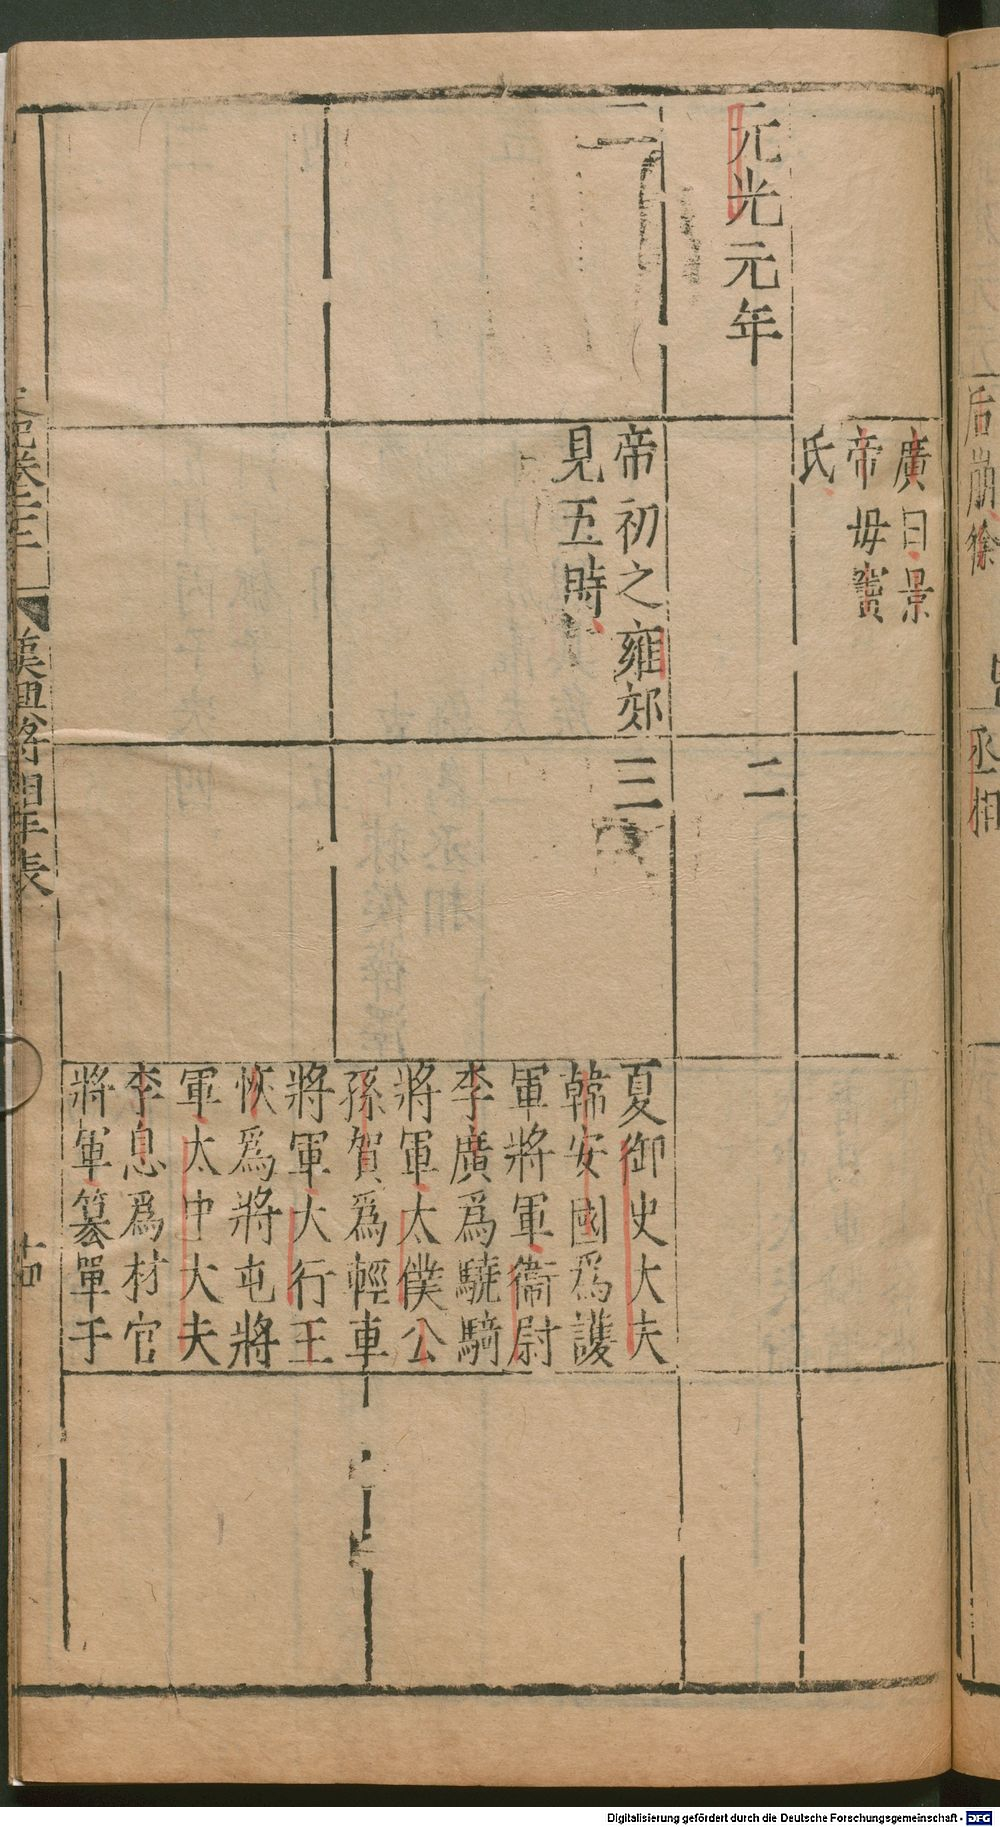 后崩徐
丞相
廣曰景
帝毋竇
氏
元光元年
二
二
帝初之雍郊
見五時
三
夏御史大夫
韓安國爲護
軍將軍衞尉
李廣爲驍騎
將軍太僕公
孫賀爲輕車
將軍大行王
恢爲將屯將
軍太中大夫
李息爲材官
將軍篡單手
漢興將相年表
Digitalisierung gefördert durch die Deutsche Forschungsgemeinschaft - DFG